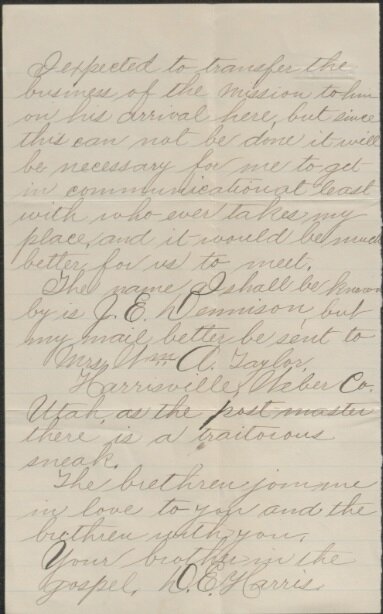 I expected to transfer the
business of the mission to him
on his arrival here, but since
this can not be done it will
be necessary for me to get
in communication at least
with who ever takes my
place, and it would be much
better for us to meet.
The name I shall be known
by is J. E. Dennison, but
my mail better be sent to
Mrs. Wm A. Taylor,
Harrisville, Weber Co.
Utah, as the post master
there is a traitorous
sneak.
The brethren join me
in love to you and the
brethren with you.
Your brother in the
gospel, D. E. Harris.